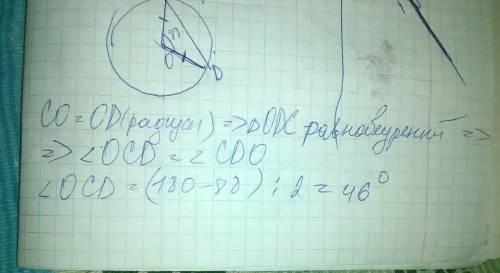 O
D
CO = OD (радиус) => ΔODC равнобедренный =>
=> ∠OCD = ∠CDO
∠OCD = (180 - 88) : 2 = 46°